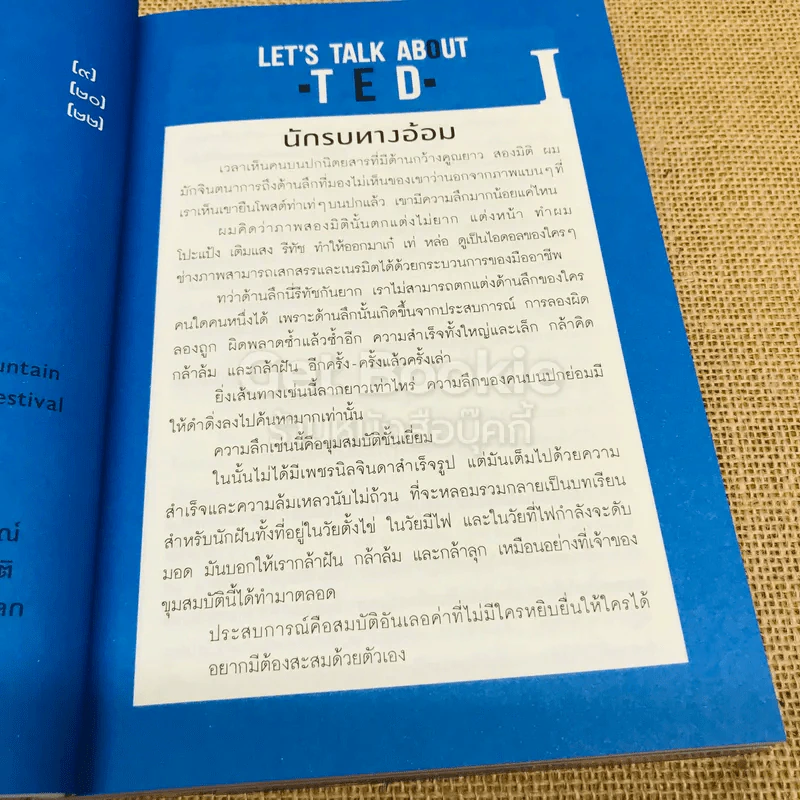 [๙]
[๒๐]
[๒๒]
untain
estival
ณ์
ติ
ลก
LET'S TALK ABOUT
·TED·
I
นักรบทางอ้อม
เวลาเห็นคนบนปกนิตยสารที่มีด้านกว้างคูณยาว สองมิติ ผม
มักจินตนาการถึงด้านลึกที่มองไม่เห็นของเขาว่านอกจากภาพแบนๆ ที่
เราเห็นเขายืนโพสต์ท่าเท่ๆ บนปกแล้ว เขามีความลึกมากน้อยแค่ไหน
ผมคิดว่าภาพสองมิตินั้นตกแต่งไม่ยาก แต่งหน้า ทำผม
โปะแป้ง เติมแสง รีทัช ทำให้ออกมาเก๋ เท่ หล่อ ดูเป็นไอดอลของใครๆ
ช่างภาพสามารถเสกสรรและเนรมิตได้ด้วยกระบวนการของมืออาชีพ
ทว่าด้านลึกนี่รีทัชกันยาก เราไม่สามารถตกแต่งด้านลึกของใคร
คนใดคนหนึ่งได้ เพราะด้านลึกนั้นเกิดขึ้นจากประสบการณ์ การลองผิด
ลองถูก ผิดพลาดซ้ำแล้วซ้ำอีก ความสำเร็จทั้งใหญ่และเล็ก กล้าคิด
กล้าล้ม และกล้าฝัน อีกครั้ง-ครั้งแล้วครั้งเล่า
ยิ่งเส้นทางเช่นนี้ลากยาวเท่าไหร่ ความลึกของคนบนปกย่อมมี
ให้ดำดิ่งลงไปค้นหามากเท่านั้น
ความลึกเช่นนี้คือขุมสมบัติชั้นเยี่ยม
ในนั้นไม่ได้มีเพชรนิลจินดาสำเร็จรูป แต่มันเต็มไปด้วยความ
สำเร็จและความล้มเหลวนับไม่ถ้วน ที่จะหลอมรวมกลายเป็นบทเรียน
สำหรับนักฝันทั้งที่อยู่ในวัยตั้งไข่ ในวัยมีไฟ และในวัยที่ไฟกำลังจะดับ
มอด มันบอกให้เรากล้าฝัน กล้าล้ม และกล้าลุก เหมือนอย่างที่เจ้าของ
ขุมสมบัตินี้ได้ทำมาตลอด
ประสบการณ์คือสมบัติอันเลอค่าที่ไม่มีใครหยิบยื่นให้ใครได้
อยากมีต้องสะสมด้วยตัวเอง
Get Bookie
ร้านหนังสือบุ๊คกี้